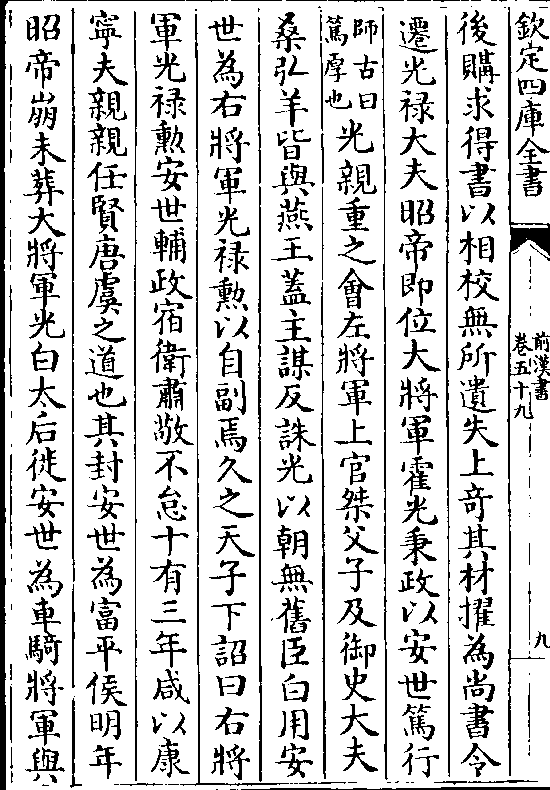 欽定四庫全書
前漢書
卷五十九
九
後購求得書以相校無所遺失上竒其材擢為尚書令
遷光禄大夫昭帝即位大將軍霍光秉政以安世篤行
師古曰
篤厚也
光親重之會左將軍上官桀父子及御史大夫
桑弘羊皆與燕王蓋主謀反誅光以朝無舊臣白用安
世為右將軍光禄勲以自副焉久之天子下詔曰右將
軍光禄勲安世輔政宿衛肅敬不怠十有三年咸以康
寧夫親親任賢唐虞之道也其封安世為富平侯明年
昭帝崩未葬大將軍光白太后徙安世為車騎將軍與